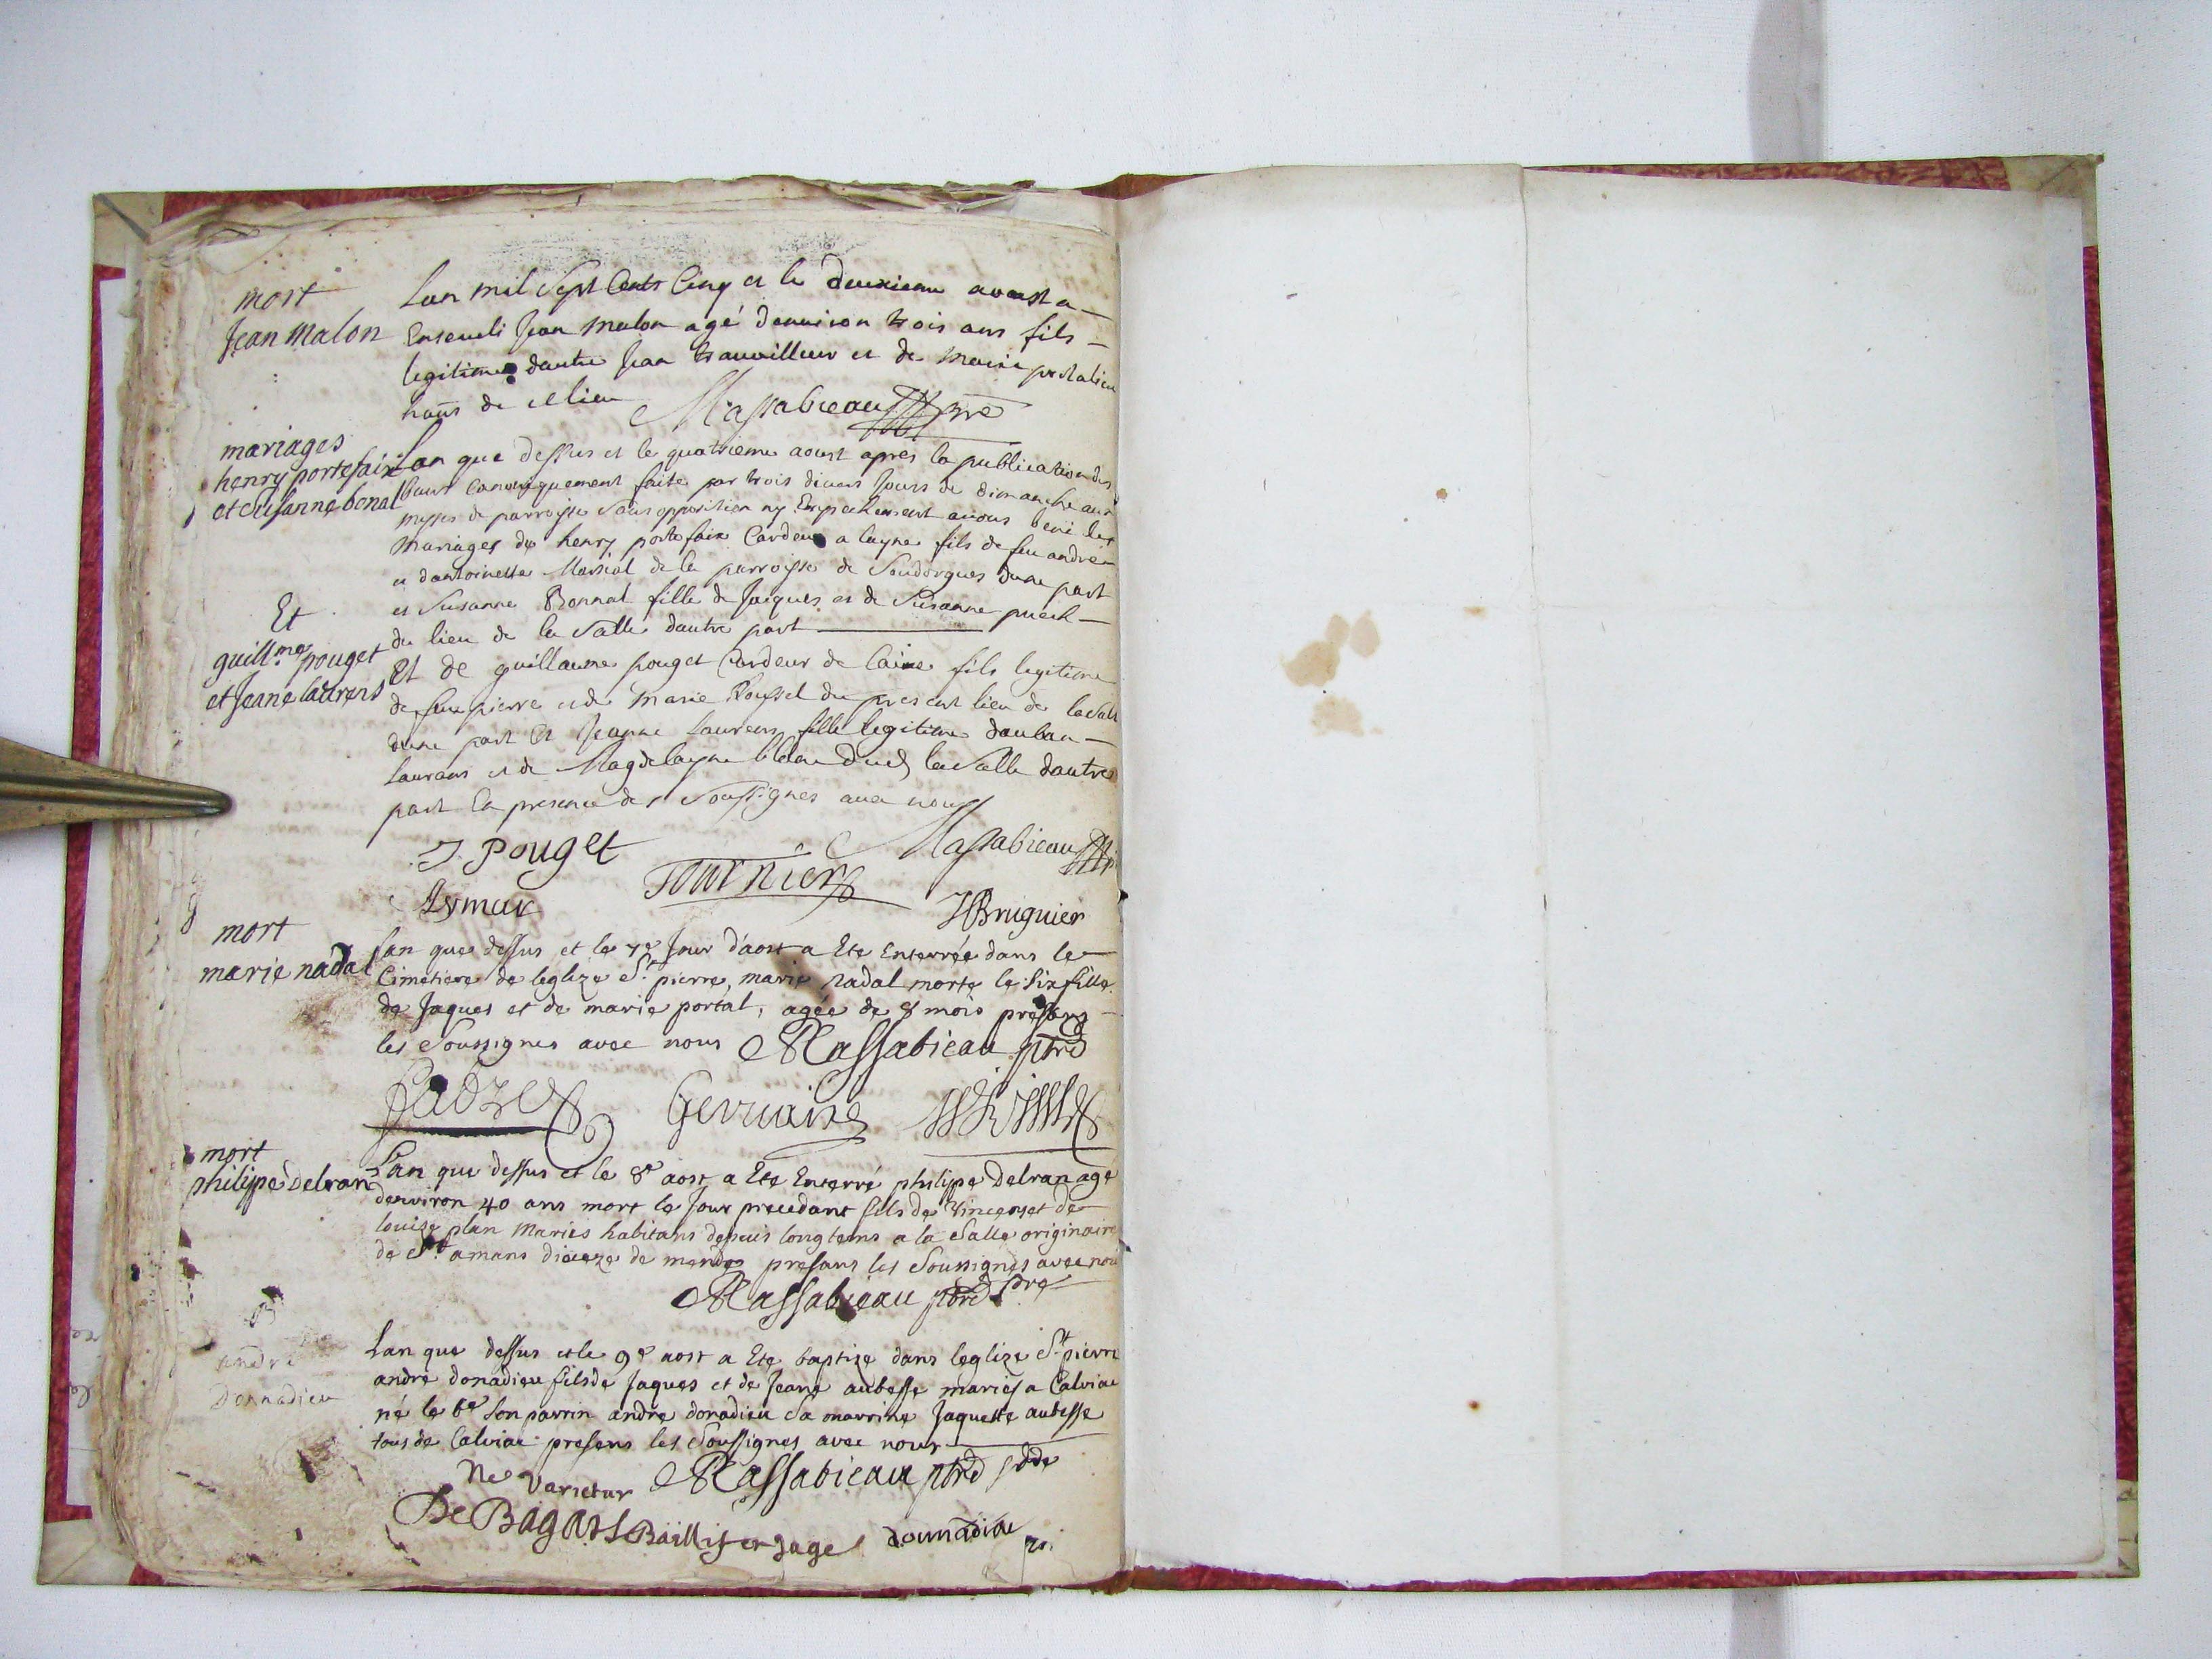 mort
Jean Malon
Lan mil Sept Cents Cinq et le deuxieme avoust a
Enseveli Jean Malon agé denviron trois ans fils
legitime dautre Jean travailleur et de Marie portalieu
hans de ce lieu Massabieau pre
mariages
henry portefaix
et Susanne bonal
Lan que dessus et le quatrieme aoust apres la publication des
bans canoniquement faite par trois divers Jours de dimanche aux
messes de parroisse Sans opposition ny Empechement avons beni les
Mariages de henry portefaix Cardeur a layne fils de feu andre
et dantoinette Martial de la parroisse de Soudorgues dune part
et Susanne Bonnal fille de Jaques et de Susanne puech
du lieu de la Salle dautre part
Et
guill.me pouget
et Jeane laurens
Et de guillaume pouget Cardeur de laine fils legitime
de feu pierre et de Marie Roussel du present lieu de la Salle
dune part Et Jeanne Laurens fille legitime dauban
Laurans et de Magdelayne dud la Salle dautre
part En presence des Soussignes avec nous
J. Pouget Massabieau
Aymar Tournier
JBruguier
mort
marie nadal
lan que dessus et le 7e Jour d'aost a Ete Enterrée dans le
Cimetiere de leglize St. pierre, marie nadal morte le six fille
de Jaques et de marie portal, agée de 8 mois presans
les Soussignes avec nous Massabieau ptre
mort
philippe Delran
L'an que dessus et le 8e aost a Ete Enterré philippe Delran agé
denviron 40 ans mort le Jour precedant fils de Vincens et de
louise plan Mariés habitans depuis longtems a la Salle originaire
de St. amans dioceze de mende presans les Soussignes avec nous
Massabieau ptre pre
B
andré
Donnadieu
Lan que dessus et le 9e aost a Ete baptize dans leglize St. pierre
andré donadieu fils de Jaques et de Jeane aubesse mariés a Calviac
né le 6e Son parrin andre donadieu Sa marrine Jaquette aubesse
tous de Calviac presens les Soussignes avec nous
Ne Varietur Massabieau ptre
De Bagars Baillif et Juge donnadieu